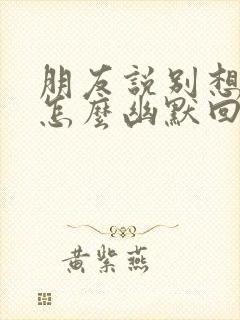 朋友說別想
怎麼幽默回
黃紫燕